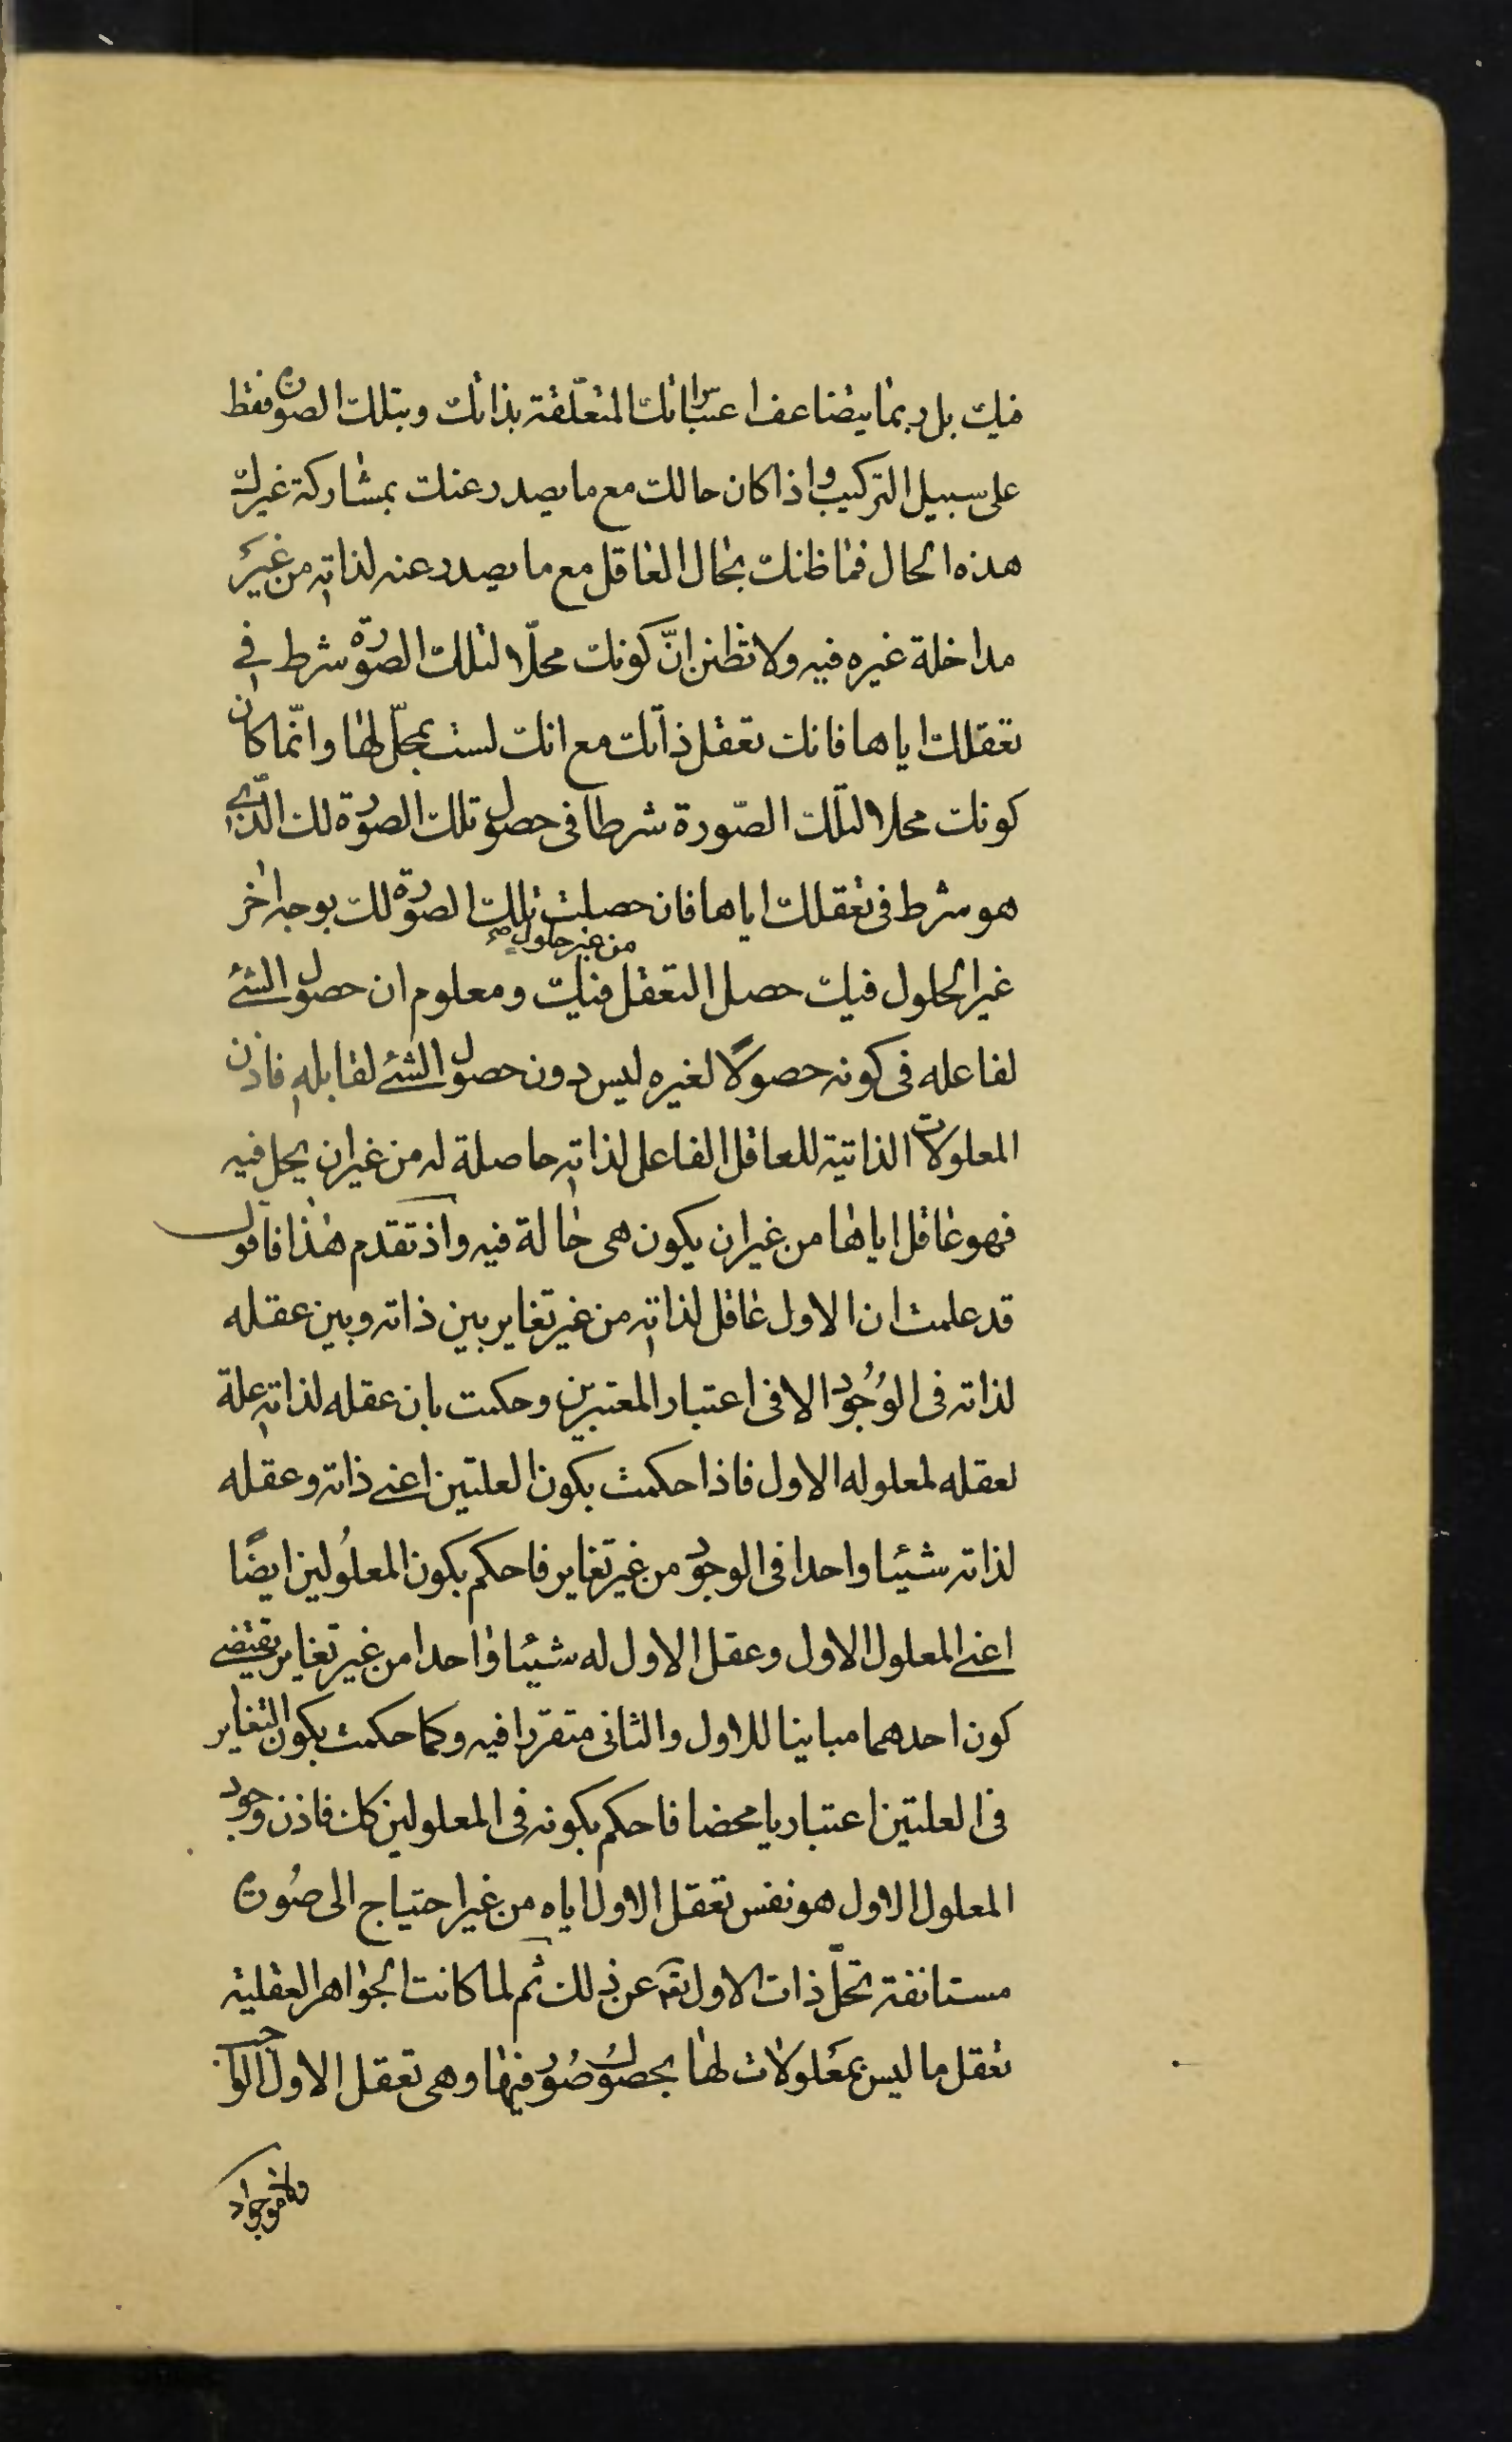 فيك بل ربما يتضاعف اعتباراتك المتعلّقة بذاتك وبتلك الصورة فقط
على سبيل التركيب واذا كان حالك مع ما يصدر عنك بمشاركة غيرك
هذه الحال فما ظنك بحال العاقل مع ما يصدر عنه لذاته من غير
مداخلة غيره فيه ولا تظنن انّ كونك محلّا لتلك الصورة شرط في
تعقلك اياها فانك تعقل ذاتك مع انك لست بمحلّ لها وانّما كان
كونك محلا لتلك الصّورة شرطا فى حصول تلك الصورة لك الذى
هو شرط فى تعقلك اياها فان حصلت تلك الصورة لك بوجه اخر
من غير حلول صح
غير الحلول فيك حصل التعقل فيك ومعلوم ان حصول الشئ
لفاعله فى كونه حصولًا لغيره ليس دون حصول الشئ لقابله فاذن
المعلولات الذاتية للعاقل الفاعل لذاته حاصلة له من غير ان يحل فيه
فهو عاقل اياها من غير ان يكون هى حالة فيه واذ تقدم هذا فاقول
قد علمت ان الاول عاقل لذاته من غير تغاير بين ذاته وبين عقله
لذاته فى الوُجُود الا فى اعتبار المعتبرين وحكمت بان عقله لذاته علة
لعقله لمعلوله الاول فاذا حكمت بكون العلتين اعنى ذاته وعقله
لذاته شيئا واحدا فى الوجود من غير تغاير فاحكم بكون المعلُولين ايضًا
اعنى المعلول الاول وعقل الاول له شيئا واحدا من غير تغاير يقتضى
كون احدهما مباينا للاول والثانى متقررا فيه وكما حكمت بكون التغاير
فى العلتين اعتباريا محضا فاحكم بكونه فى المعلولين كك فاذن وجود
المعلول الاول هو نفس تعقل الاول اياه من غير احتياج الى صُورة
مستانفة تحلّ ذات الاول تعـ عن ذلك ثم لما كانت الجواهر العقلية
تعقل ما ليس بمعَلولات لها بحصُول صُور فيها وهى تعقل الاول الواجب
ولا موجود